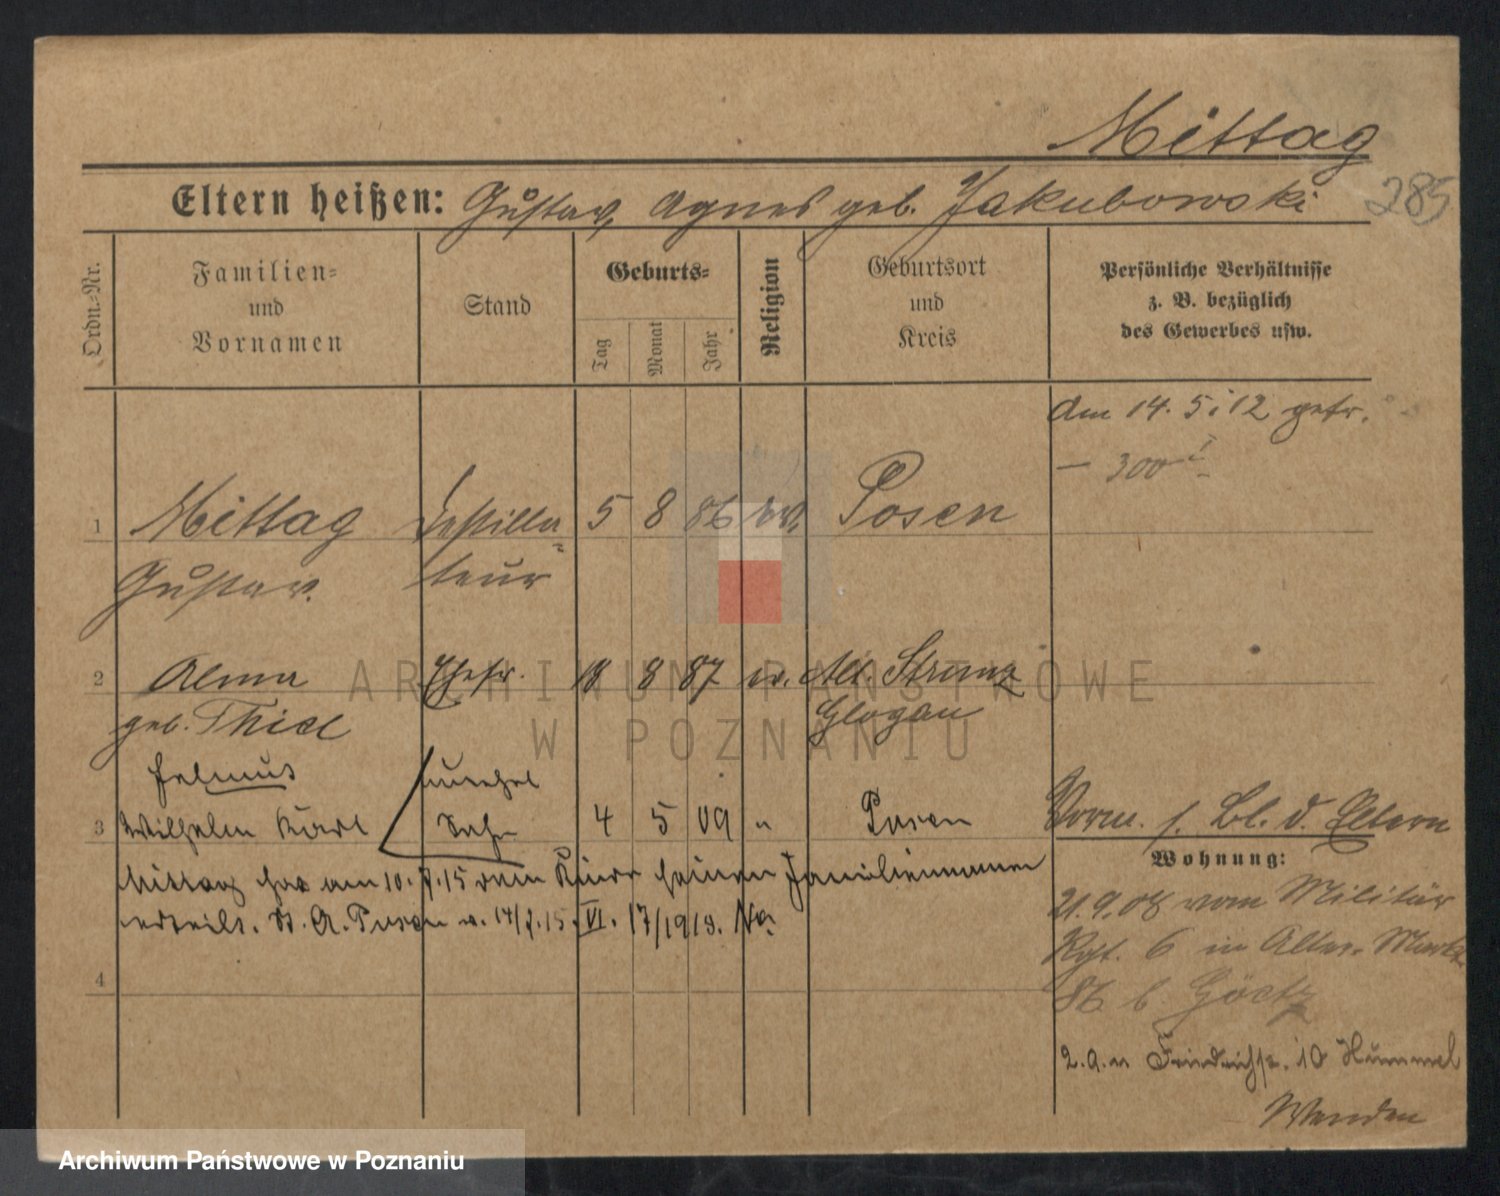 Mittag
285
Eltern heißen: Gustav, Agnes geb. Jakubowski
Ordn.-Nr.
Familien- und Vornamen
Stand
Geburts-
Tag
Monat
Jahr
Religion
Geburtsort und Kreis
Persönliche Verhältnisse z. B. bezüglich des Gewerbes usw.
Am 14. 5. 12 getr.
– 300
1 Mittag Destilla- 5 8 86 ev. Posen
Gustav. teur
2 Alma Ehefr. 18 8 87 ev. Alt. Strunz
geb. Thiel Glogau
Helmut unehel
3 Wilhelm Kurt Sohn 4 5 09 " Posen
Vorm. s. Bl. d. Eltern
Mittag hat am 10. 7. 15 dem Kinde seinen Familiennamen
erteilt. St. A. Posen v. 14/7. 15. VI. 17/1913.
4
Wohnung:
21.9.08 vom Militär
Rgt. 6 in Alter-Markt
86 b. Götz
2.9. n Friedrichstr. 10 Hummel
Wenden
ARCHIWUM PAŃSTWOWE
W POZNANIU
Archiwum Państwowe w Poznaniu